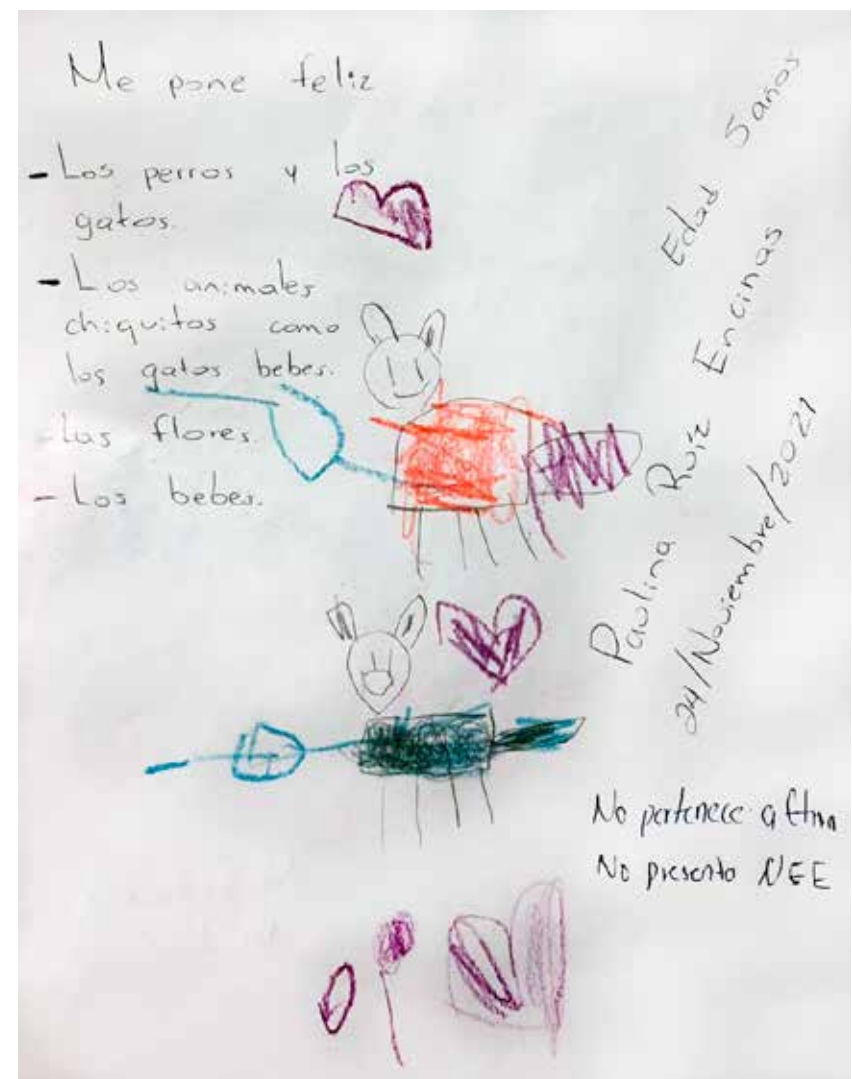 Me pone feliz
- Los perros y los
gatos.
- Los animales
chiquitos como
los gatos bebes.
- Las flores.
- Los bebes.
Edad 5 años
Paulina Ruiz Encinas
24/Noviembre/2021
No pertenece a
No presenta NEE